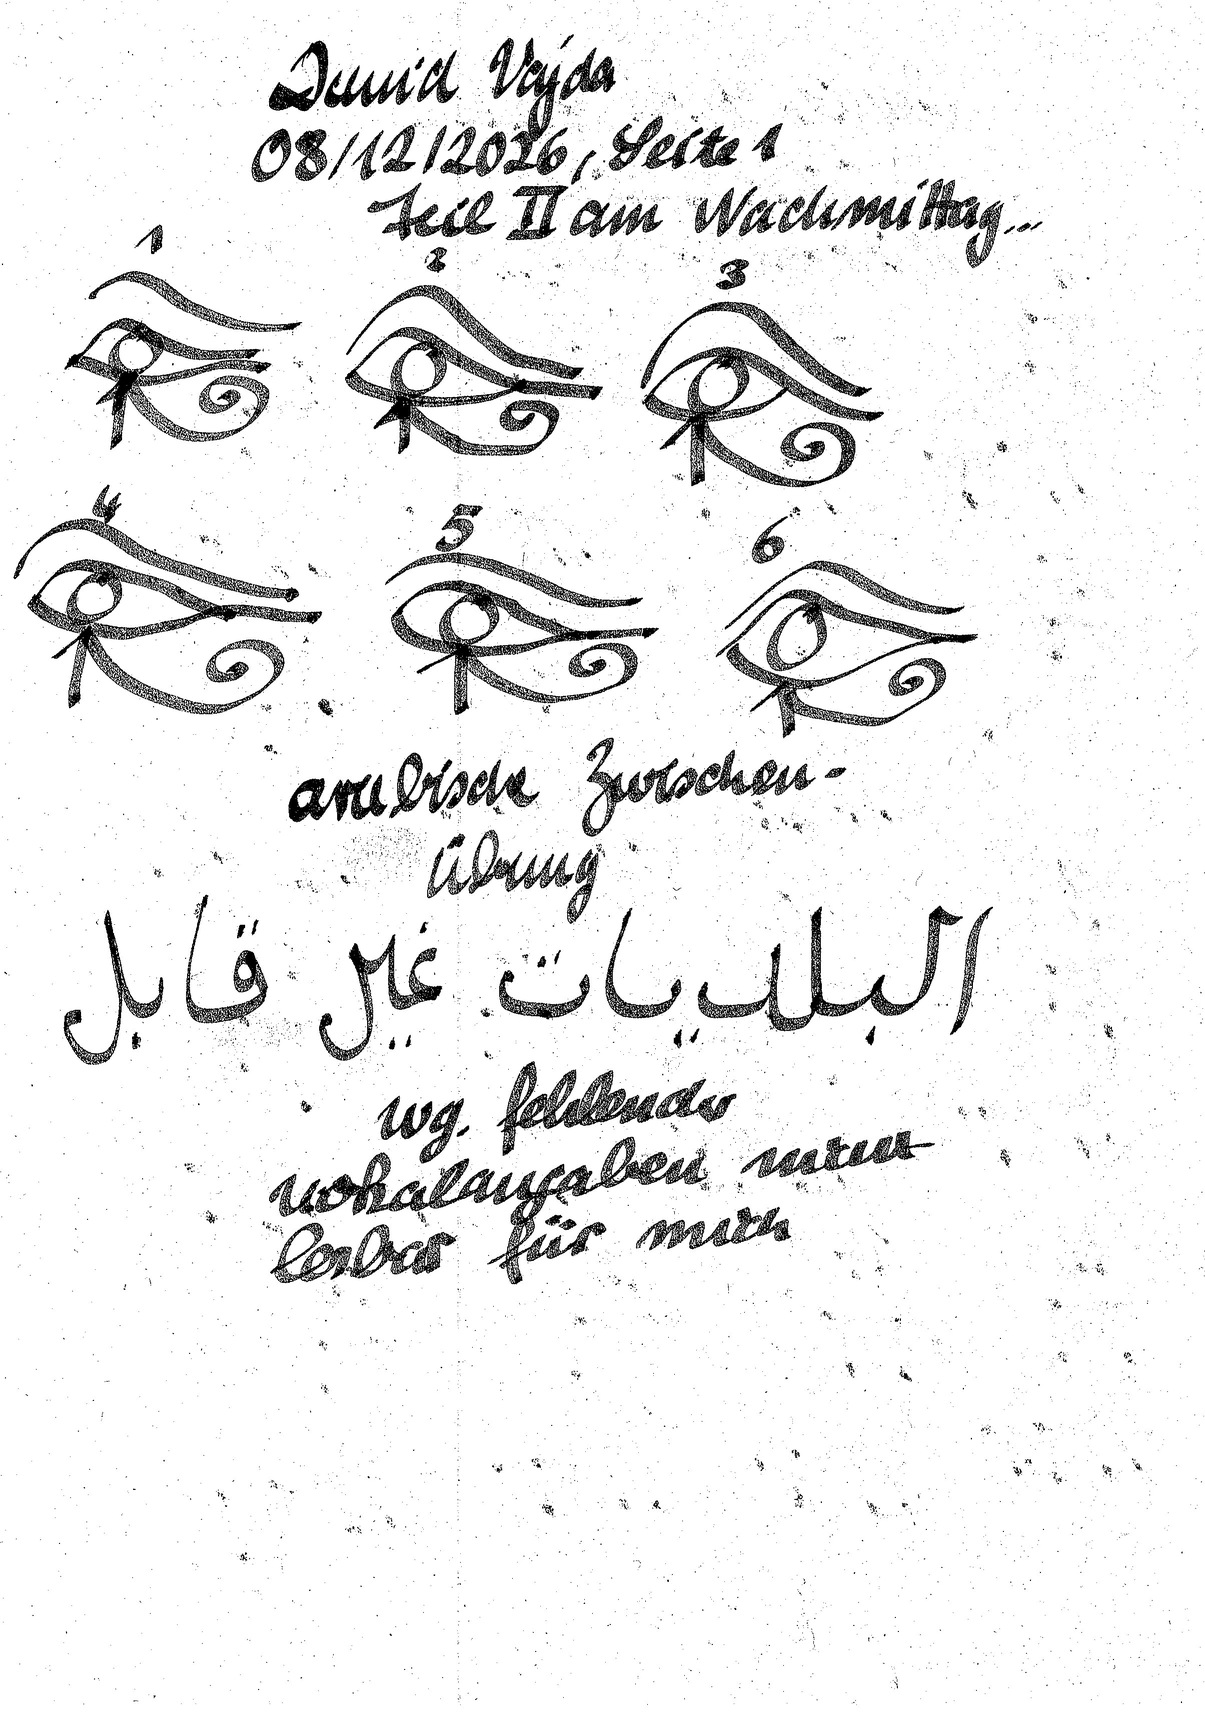 David Vajda
08/12/2026, Seite 1
Teil II am Nachmittag...
1
2
3
4
5
6
arabische Zwischen-
übung
البلديات غير قابل
wg. fehlender
Vokalangaben nicht
lesbar für mich